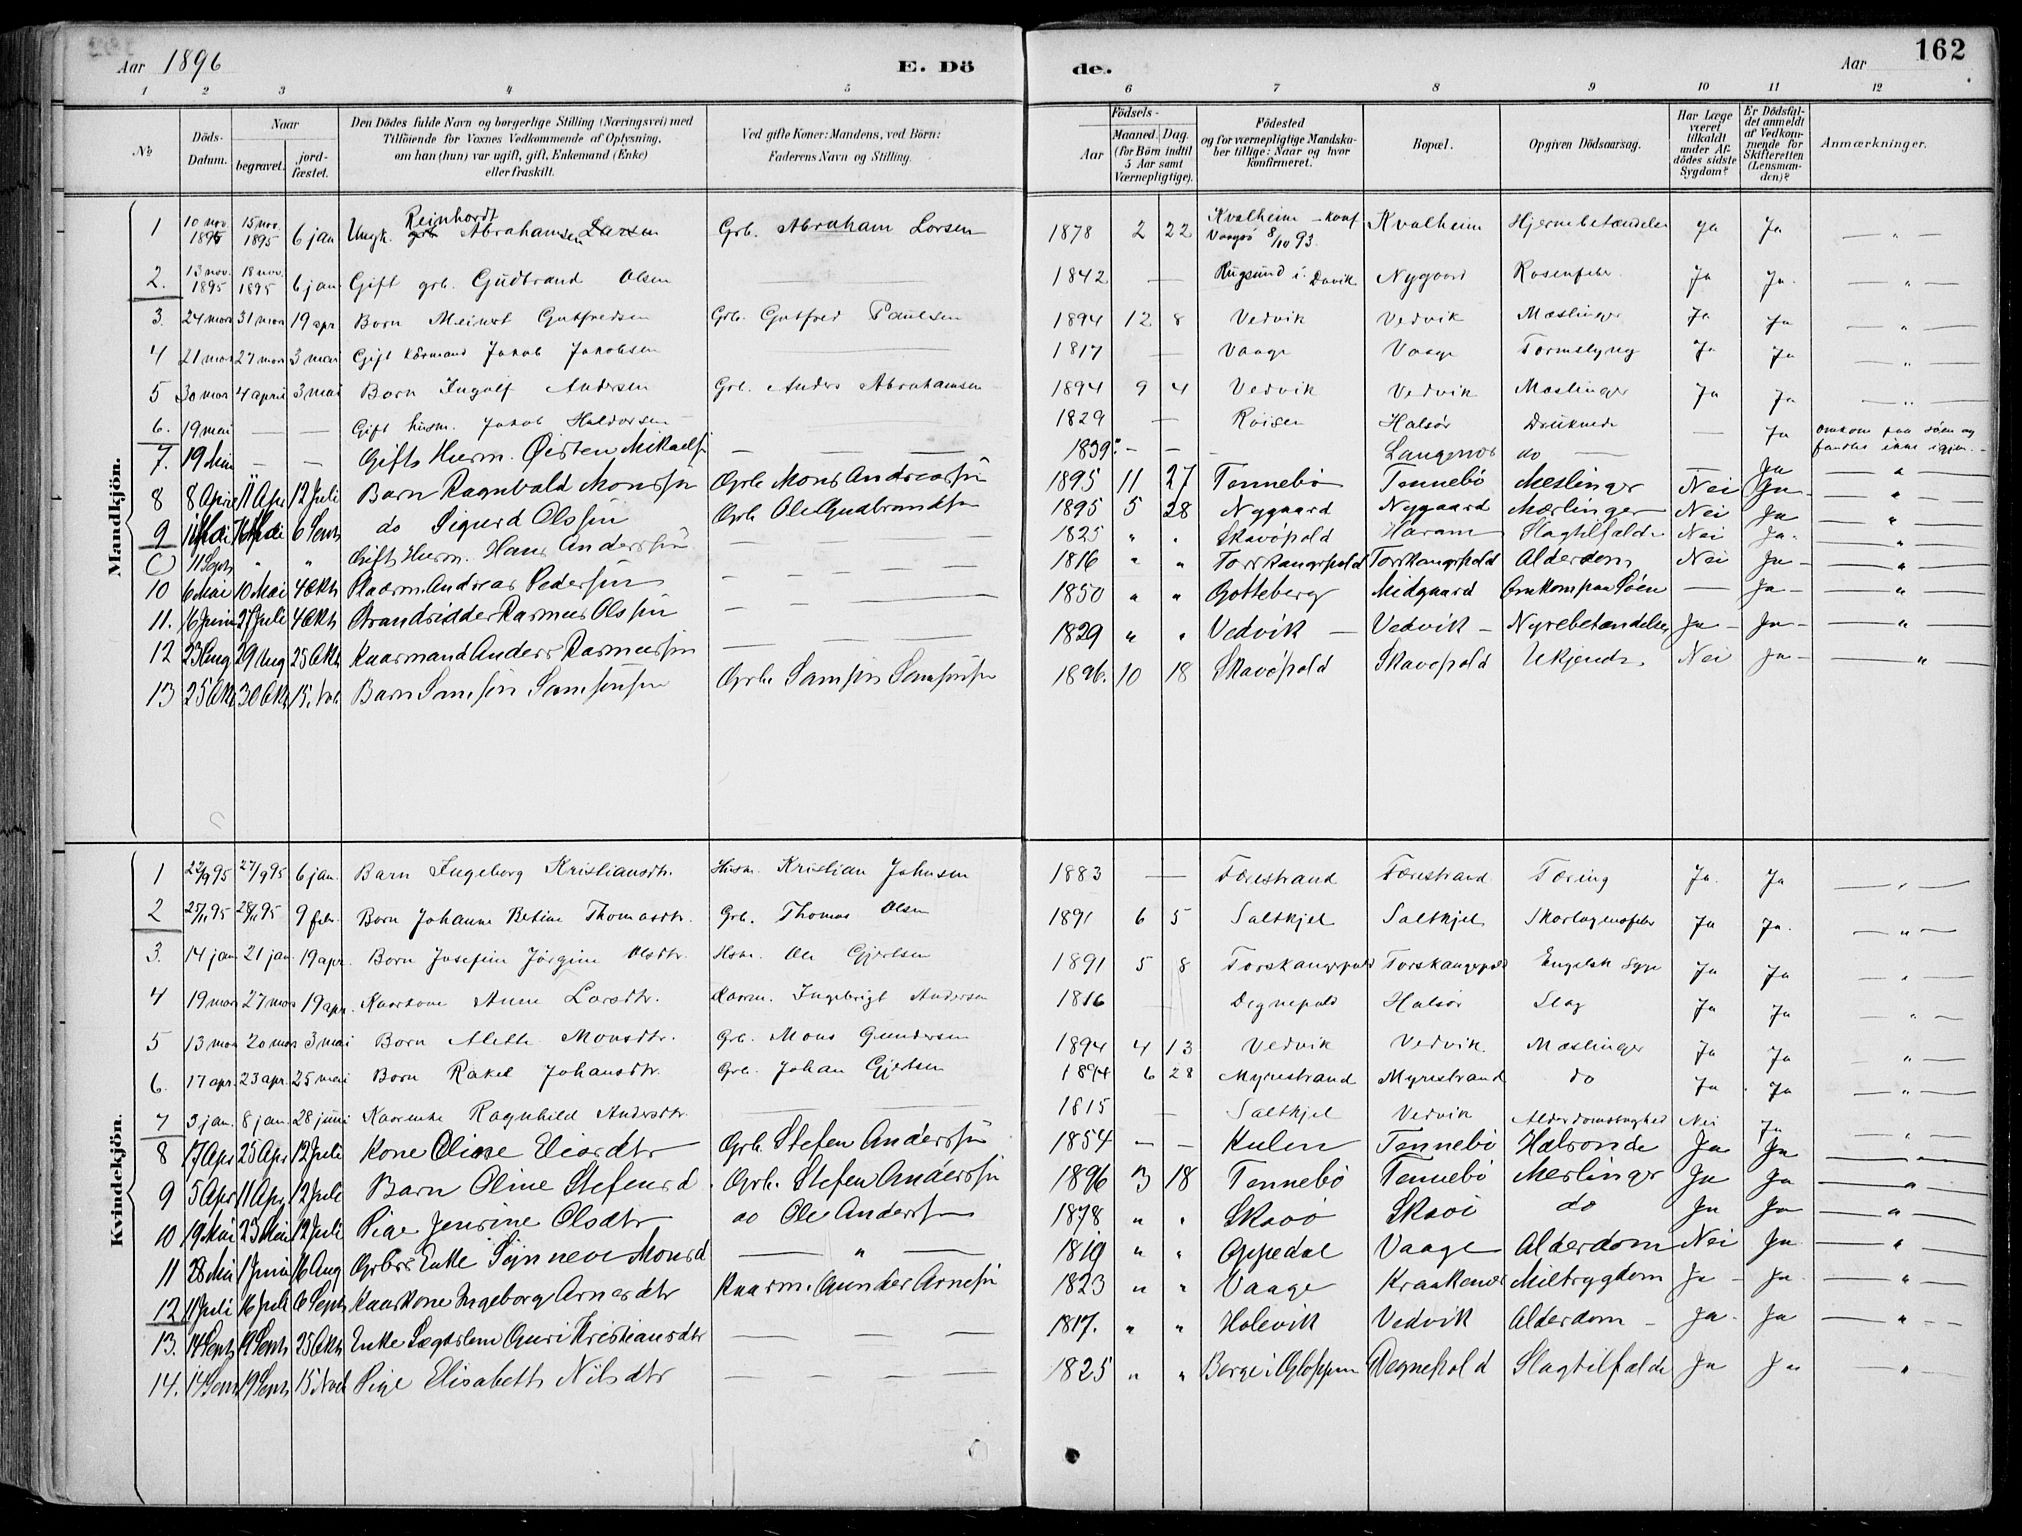 Aar 1896 E. Döde. Aar 162
1 2 3 4 5 6 7 8 9 10 11 12
No Döds-Datum. Naar begravet. jordfæstet. Den Dödes fulde Navn og borgerlige Stilling (Næringsvei) med Tilföiende for Voxnes Vedkommende af Oplysning, om han (hun) var ugift, gift, Enkemand (Enke) eller fraskilt. Ved gifte Koner: Mandens, ved Börn: Faderens Navn og Stilling. Födsels- Aar Maaned. Dag. (for Börn indtil 5 Aar samt Værnepligtige). Födested og for værnepligtige Mandskaber tillige: Naar og hvor konfirmeret. Bopæl. Opgiven Dödsaarsag. Har Læge været tilkaldt under Afdödes sidste Sygdom? Er Dödsfaldet anmeldt af Vedkommende for Skifteretten (Lensmanden)? Anmærkninger.
Mandkjön.
1 10 nov. 1895 15 nov. 1895 6 jan Ungk. Reinhardt Abrahamsen Grb. Abraham Larsen 1878 2 22 Kvalheim - konf Vaagsö 8/10 93. Kvalheim Hjernebetændelse Ja Ja — " —
2. 13 nov. 1895 18 nov. 1895 6 jan Gift grb. Gudbrand Olsen — 1842 — Rugsund i Davik Nygaard Rosenfeber Ja Ja. — " —
3. 24 mars 31 mars 19 apr Barn Meinert Gutfredsen Grb. Gutfred Paulsen 1894 12 8 Vedvik Vedvik Mæslinger Ja Ja — " —
4 21 mars 27 mars 3 mai Gift Kårmand Jakob Jakobsen 1817 — Vaage Vaage Tarmslyng Ja Ja — " —
5 30 mars 4 april 3 mai Barn Ingolf Andersen Grb. Anders Abrahamsen 1894 9 4 Vedvik Vedvik Mæslinger Ja Ja — " —
6. 19 mai — — Gift husm. Jakob Haldorsen — 1829 — Halsør Druknede — Ja omkom paa söen og fandtes ikke igjen. -
7. 19 Mai — — Gift Husm. Øisten Mikaels — — 1839 — — - do — Ja — " —
8 8 April 11 Apr 12 Juli Barn Ragnvald Monssøn Grb. Mons Andreassøn 1895 11 27 Tennebö Tennebö Meslinger Nei Ja — " —
9 11 Mai 6 Sept do Sigurd Olssøn Grb. Ole Gudbrandssøn 1895 5 28 Nygaard Nygaard Mæslinger Nei Ja — " —
11 Sept " " Gift Husm. Hans Anderssøn — — 1825 " " Skavöpold Haram Slagtilfælde Nei Ja - — " —
10 6 Mai 10 Mai 4 Okt Andreas Pederssøn — — — 1816 " " Torskangerpold Torskangerpold Alderdom Nei Ja - — " —
11. 16 Juni 27 Juli 4 Okt Strandsidder Rasmus Olssøn — — — 1850 " " Gotteberg Midgaard Omkom paa Söen — Ja - — " —
12 23 Aug 29 Aug 25 Okt Kaarmand Anders Rasmussøn — 1829 " " Vedvik — Vedvik — Nyrebetændelse Ja - Ja - — " —
13 25 Okt 30 Okt 15. Nov. Barn Samsøn Samsønsøn Grb. Samsøn Samsønsøn 1896. 10 18 Skavöpold Skavöpold Ukjendt Nei Ja - — " —
Kvindekjön.
1 22/9 95 27/9 95 6 jan. Barn Ingeborg Kristiansdtr. Husm. Kristian Johnsen 1883 — Færestrand Færestrand Tæring Ja. Ja — " —
2 95 95 9 febr. Barn Johanne Betine Thomasdtr. Grb. Thomas Olsen 1891 6 5 Saltkjel Saltkjel Skarlagensfeber Ja Ja. — " —
3. 14 jan 21 jan. 19 apr. Barn Josefine Jörgine Olsdtr. Hsm. Ole Gjertsen 1891 5 8 Torskangerpold Torskangerpold Engelsk Syge Ja Ja "
4 19 mars 27 mars 19 apr. Kaarkone Anne Larsdtr. Kaarm. Ingebrigt Andersen 1816 — Degnepold Halsör Slag Ja Ja — " —
5 13 mars 20 mars 3 mai Barn Alette Monsdtr. Grb. Mons Gundersen 1894 4 13 Vedvik Vedvik. Mæslinger Ja Ja — " —
6. 17 apr. 23 apr. 25 mai Barn Rakel Johansdtr. Grb. Johan Gjertsen 1894 6 28 Myrestrand Myrestrand do Ja Ja — " —
7 3 jan. 8 jan. 28 juni Kaarenke Ragnhild Andersdtr. — 1815 — Saltkjel Vedvik Alderdomssvaghed Nei Ja — " —
8 17 Apr 25 Apr 12 Juli Kone Oline Eliasdtr Grb. Stefen Anderssøn 1854 — — Kulen Tennebö Halsonde Ja Ja — " —
9 5 Apr 11 Apr 12 Juli Barn Oline Stefensd. Grb. Stefen Anderssøn 1896 3 18 Tennebö Tennebö Meslinger Ja Ja — " —
10 19 Mai 23 Mai 12 Juli Pige Jensine Olsdtr do Ole Anderssøn 1878 " " Skavö Skavö do Ja Ja — " —
11 28 Mai 1 Juni 16 Aug Grbrs Enke Synneve Monsd — " — 1819 " " Oppedal Vaage Alderdom Nei Ja — " —
12 11 Juli 16 Juli 6 Sept Kaarkone Ingeborg Arnesdtr Kaarm. Gunder Arnesøn 1823 " " Vaage Kraakenes Miltsygdom Ja - Ja — " —
13. 14 Sept 19 Sept 25 Okt Enke Lægdslem Guri Kristiansdtr — — — — 1817. " " Holevik Vedvik Alderdom — Ja - Ja — " —
14. 14 Sept 19 Sept 15 Novb Pige Elisabeth Nilsdtr — — — — 1825 " " Berge i Gloppen Degnepold Slagtilfælde Ja Ja "